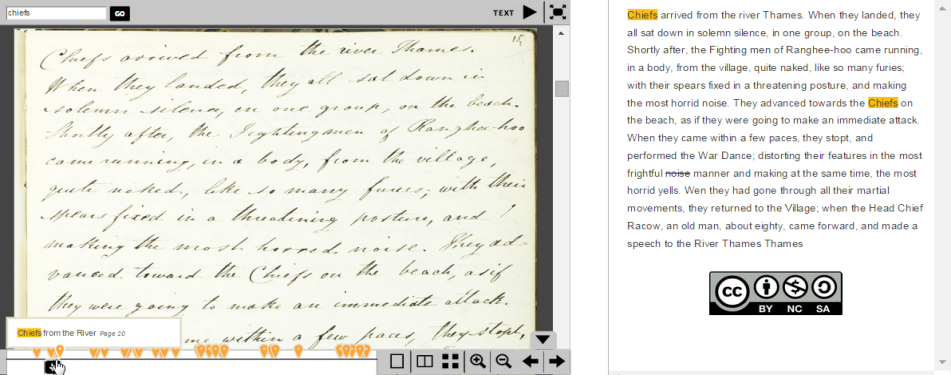 chiefs
GO
TEXT
15
Chiefs arrived from the river Thames.
When they landed, they all sat down in
solemn silence, in one group, on the beach.
Shortly after, the Fighting men of Ranghee-hoo
came running, in a body, from the village,
quite naked, like so many furies; with their
spears fixed in a threatening posture, and
making the most horred noise. They ad-
vanced toward the Chiefs on the beach, as if
they were going to make an immediate attack.
me within a few paces, they stopt,
Chiefs from the River Page 20
Chiefs arrived from the river Thames. When they landed, they
all sat down in solemn silence, in one group, on the beach.
Shortly after, the Fighting men of Ranghee-hoo came running,
in a body, from the village, quite naked, like so many furies;
with their spears fixed in a threatening posture, and making
the most horrid noise. They advanced towards the Chiefs on
the beach, as if they were going to make an immediate attack.
When they came within a few paces, they stopt, and
performed the War Dance; distorting their features in the most
frightful noise manner and making at the same time, the most
horrid yells. Wen they had gone through all their martial
movements, they returned to the Village; when the Head Chief
Racow, an old man, about eighty, came forward, and made a
speech to the River Thames Thames
cc
BY NC SA